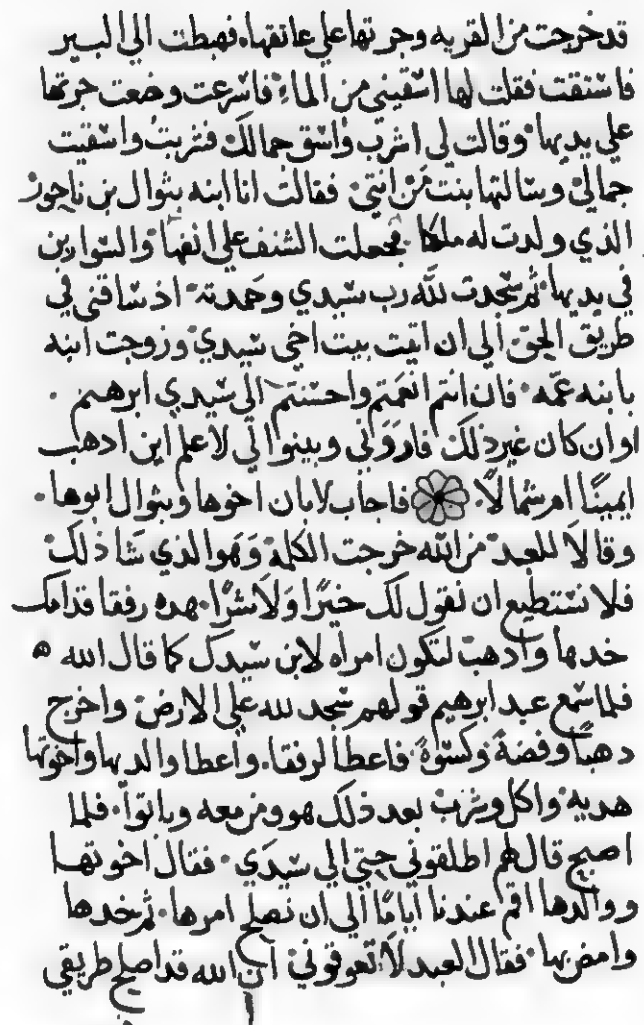 قد خرجت من القريه وجرتها علي عاتقها. فهبطت الي البير
فاستقت فقلت لها اسقيني من الماء. فاسرعت وضعت جرتها
علي يديها. وقالت لي اشرب واسق جمالك فشربت واسقيت
جمالي وسالتها بنت من انتي. فقالت انا ابنه بثوال بن ناحور
الذي ولدت له ملكا. فجعلت الشنف علي انفها والسوارين
في يديها. ثم سجدت لله رب سيدي وحمدته. اذ ساقني في
طريق الحق الي ان اتيت بيت اخي سيدي وزوجت ابنه
بابنه عمه. فان انتم انعمتم واحسنتم الي سيدي ابرهيم.
اوان كان غير ذلك فاروني وبينوا لي لاعلم اين ادهب
ايمينًا ام شمالًا. فاجاب لابان اخوها وبثوال ابوها.
وقالا للعبد من الله خرجت الكلمة وهو الذي شا ذلك
فلا نستطيع ان نقول لك خيرًا ولا شرًا. هده رفقا قدامك
خدها وادهب لتكون امراه لابن سيدك كما قال الله ه
فلما سمع عبد ابرهيم قولهم سجد لله علي الارض واخرج
دهبًا وفضة وكسوةً فاعطا لرفقا. واعطا والديها واخوتها
هديه. واكل وشرب بعد ذلك هو ومن معه وباتوا. فلما
اصبح قال لهم اطلقوني حتي الي سيدي. فقال اخوتها
ووالدها اقم عندنا ايامًا الي ان نصلح امرها. ثم خدها
وامض بها. فقال العبد لا تعوقوني ان الله قد اصلح طريقي